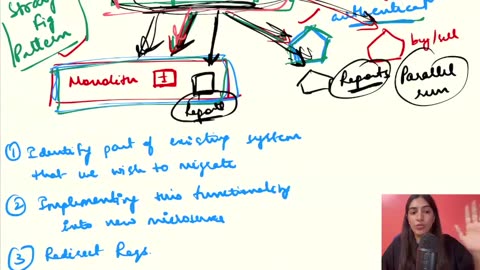 Strang
Fig
Pattern
authenticat
by/sell
Monolith
1
Report
Reports
Parallel
run
① Identify part of existing system
that we wish to migrate
② Implementing this functionality
into new microservice
③ Redirect Reqs.